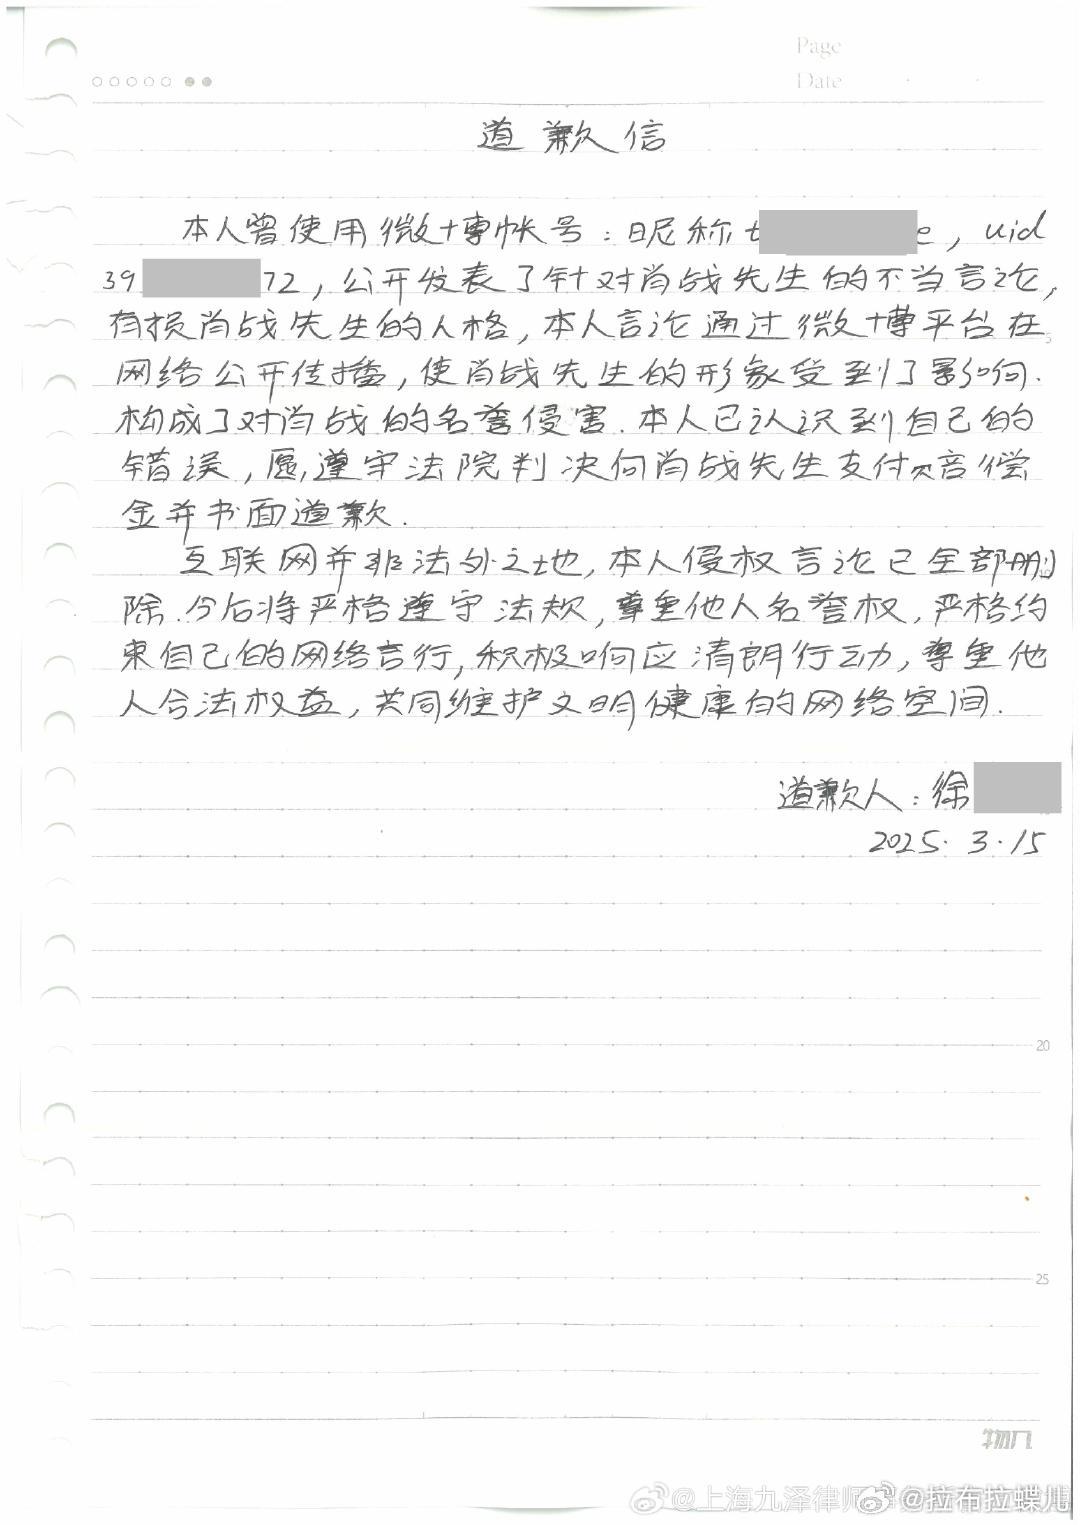 Page
Date
道歉信
本人曾使用微博帐号：昵称t e，uid
39 72，公开发表了针对肖战先生的不当言论，
有损肖战先生的人格，本人言论通过微博平台在
网络公开传播，使肖战先生的形象受到了影响.
构成了对肖战的名誉侵害.本人已认识到自己的
错误，愿遵守法院判决向肖战先生支付赔偿
金并书面道歉.
互联网并非法外之地，本人侵权言论已全部删
除.今后将严格遵守法规，尊重他人名誉权，严格约
束自己的网络言行，积极响应清朗行动，尊重他
人合法权益，共同维护文明健康的网络空间.
道歉人：徐
2025.3.15
20
25
物几
@上海九泽律师 @拉布拉蝶儿